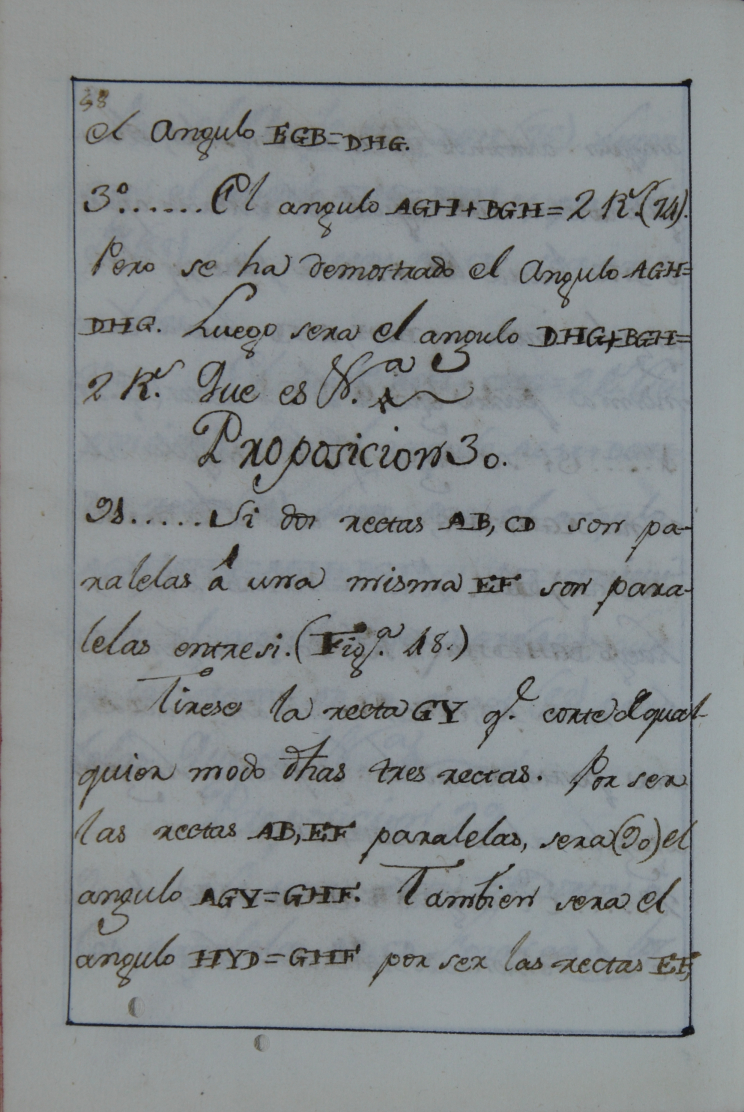 38
el Angulo EGB=DHG.
3º......El angulo AGH+BGH=2 Rˢ.(74).
Pero se ha demostrado el Angulo AGH=
DHG. Luego sera el angulo DHG+BGH=
2 Rˢ. Que es
Proposicion 30.
91......Si dos rectas AB, CD son pa-
ralelas á una misma EF son para-
lelas entresi. (Figª. 48.)
Tirese la recta GY qᵉ. corte de qual-
quier modo dhas tres rectas. Por ser
las rectas AB, EF paralelas, sera (90) el
angulo AGY=GHF. Tambien sera el
angulo HYD=GHF por ser las rectas EF,